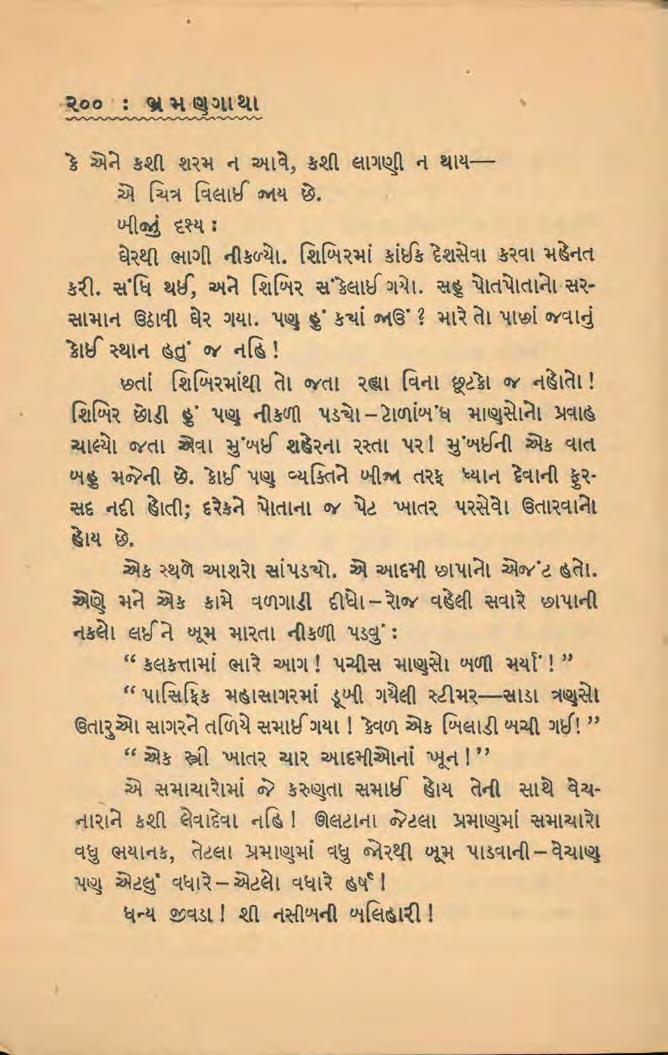 ૨૦૦ : ભ્રમણગાથા
કે એને કશી શરમ ન આવે, કશી લાગણી ન થાય—
એ ચિત્ર વિલાઈ જાય છે.
બીજું દૃશ્ય :
ઘેરથી ભાગી નીકળ્યો. શિબિરમાં કાંઈક દેશસેવા કરવા મહેનત
કરી. સંધિ થઈ, અને શિબિર સંકેલાઈ ગયો. સહુ પોતપોતાનો સર-
સામાન ઉઠાવી ઘેર ગયા. પણ હું કયાં જાઉં ? મારે તો પાછાં જવાનું
કોઈ સ્થાન હતું જ નહિ !
છતાં શિબિરમાંથી તો જતા રહ્યા વિના છૂટકો જ નહોતો !
શિબિર છોડી હું પણ નીકળી પડયો – ટોળાંબંધ માણસોનો પ્રવાહ
ચાલ્યો જતા એવા મુંબઈ શહેરના રસ્તા પર! મુંબઈની એક વાત
બહુ મજેની છે. કોઈ પણ વ્યક્તિને બીજા તરફ ધ્યાન દેવાની ફુર-
સદ નદી હોતી; દરેકને પોતાના જ પેટ ખાતર પરસેવો ઉતારવાનો
હોય છે.
એક સ્થળે આશરો સાંપડયો. એ આદમી છાપાનો એજંટ હતો.
એણે મને એક કામે વળગાડી દીધો – રોજ વહેલી સવારે છાપાની
નકલો લઈને બૂમ મારતા નીકળી પડવું :
“ કલકત્તામાં ભારે આગ ! પચીસ માણસો બળી મર્યાં ! ”
“ પાસિફિક મહાસાગરમાં ડૂબી ગયેલી સ્ટીમર—સાડા ત્રણસો
ઉતારુઓ સાગરને તળિયે સમાઈ ગયા ! કેવળ એક બિલાડી બચી ગઈ! ”
“ એક સ્ત્રી ખાતર ચાર આદમીઓનાં ખૂન ! ”
એ સમાચારોમાં જે કરુણતા સમાઈ હોય તેની સાથે વેચ-
નારાને કશી લેવાદેવા નહિ ! ઊલટાના જેટલા પ્રમાણમાં સમાચારો
વધુ ભયાનક, તેટલા પ્રમાણમાં વધુ જોરથી બૂમ પાડવાની – વેચાણ
પણ એટલું વધારે – એટલો વધારે હર્ષ !
ધન્ય જીવડા ! શી નસીબની બલિહારી !